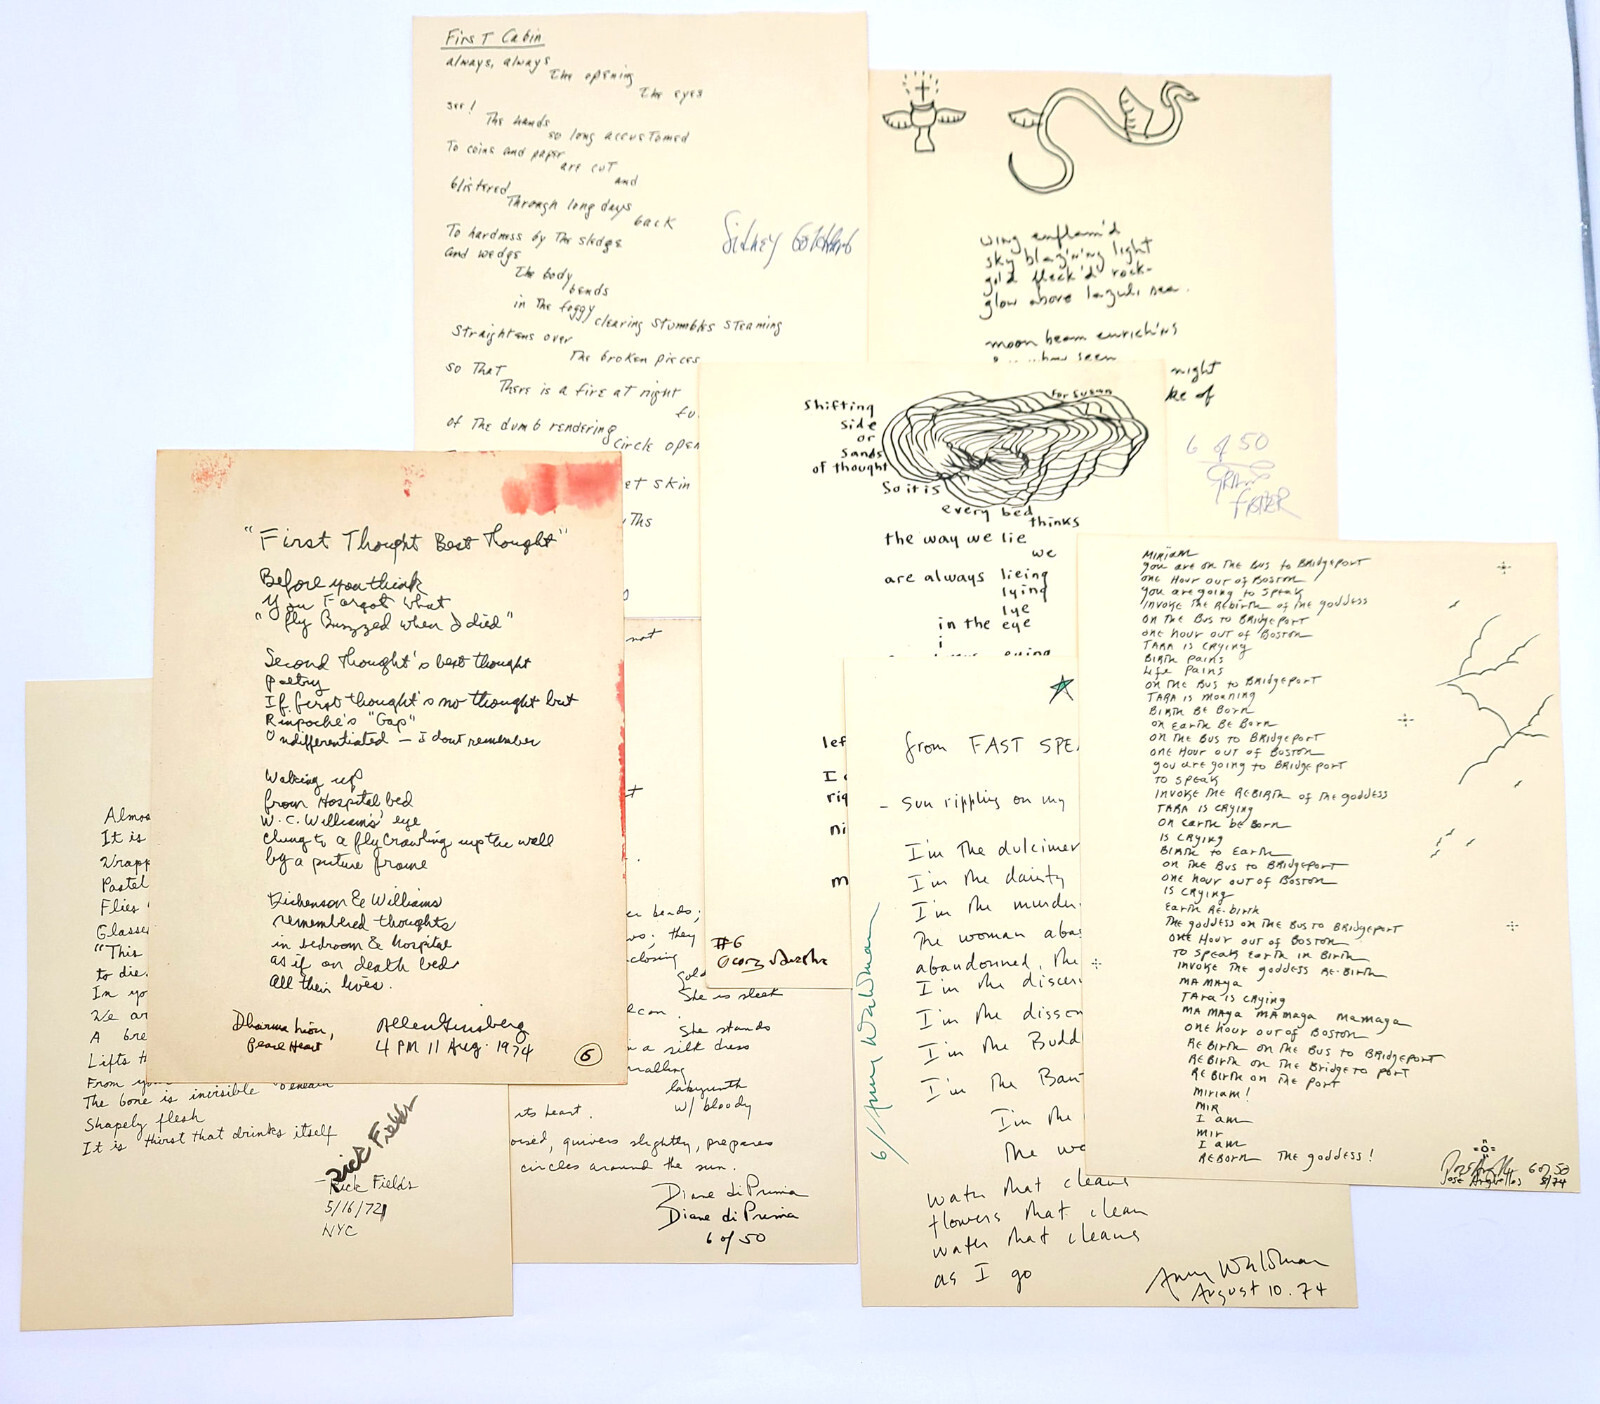 First Cabin
always, always
The opening
The eyes
see!
The hands
so long accustomed
To coins and paper
are cut
and
blistered
Through long days
back
To hardness by The sledge
and wedge
The body
bends
in The foggy
clearing stumbles steaming
Straightens over
The broken pieces
so That
There is a fire at night
fu
of The dumb rendering
circle open
et skin
Ths
Sidney Goldfarb
wing enflam'd
sky blazing light
gold fleck'd rock-
glow above lazuli sea.
moon beam enrich'd
seen
night
ke of
6 of 50
FISHER
For Susan
Shifting
side
or
sands
of thought
So it is
every bed
thinks
the way we lie
we
are always lieing
lying
lye
in the eye
i
lef
I
rig
ni
m
#6
"First Thought Best Thought"
Before you think
You Forgot what
"fly Buzzed when I died"
Second thought's best thought
poetry
If first thought's no thought but
Rinpoche's "Gap"
Undifferentiated — I dont remember
Waking up
from Hospital bed
W.C. Williams' eye
clung to a fly crawling up the wall
by a picture frame
Dickenson & Williams
remembered thoughts
in bedroom & hospital
as if on death bed
all their lives.
Dharma Lion,
Peace Heart
Allen Ginsberg
4 PM 11 Aug. 1974
6
Almos
It is
Wrapp
Pastel
Flies
Glasse
"This
to die.
In yo
We ar
A bre
Lifts t
From you
The bone is invisible beneath
Shapely flesh
It is thirst that drinks itself
Rick Fields
- Rick Fields
5/16/72
NYC
not
t
beads;
they
closing
gold
She is sleek
She stands
a silk dress
labyrinth
w/ bloody
its heart.
oised, quivers slightly, prepares
circles around the sun.
Diane di Prima
Diane di Prima
6 of 50
from FAST SPE
- Sun rippling on my
I'm the dulcimer
I'm the dainty
I'm the murder
The woman aba
abandonned, the
I'm the discer
I'm the disson
I'm the Budd
I'm the Ban
I'm the
the wo
water that cleans
flowers that clean
water that cleans
as I go
Anne Waldman
August 10. 74
6/Anne Waldman
Miriam
you are on the Bus to Bridgeport
one Hour out of Boston
you are going to speak
invoke the Rebirth of the goddess
on the Bus to Bridgeport
one hour out of Boston
TARA is crying
Birth Pains
Life Pains
on the Bus to Bridgeport
TARA is moaning
Birth Be Born
on Earth Be Born
on the Bus to Bridgeport
one hour out of Boston
you are going to Bridgeport
to speak
invoke the Rebirth of the goddess
TARA is crying
on earth be Born
is crying
Birth to Earth
on the Bus to Bridgeport
one hour out of Boston
is crying
Earth Re-birth
The goddess on the Bus to Bridgeport
one Hour out of Boston
To speak Earth in Birth
invoke the goddess Re-Birth
MA MAya
TARA is crying
MA MAya MAmaya mamaya
one hour out of Boston
Re Birth on the Bus to Bridgeport
Re Birth on the Bridge to port
Re Birth on the port
Miriam!
Mir
I am
Mir
I am
Reborn The goddess!
José Argüelles
6 of 50
8/74